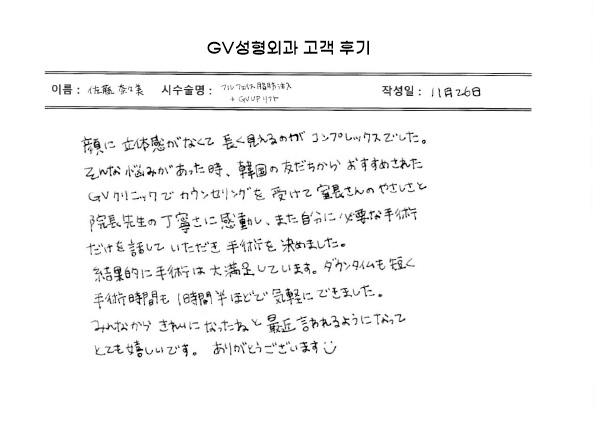 GV성형외과 고객 후기
이름 : 佐藤 奈々美 시수술명 : フルフェイス脂肪注入 작성일 : 11月26日
+ GVUPリフト
顔に立体感がなくて長く見えるのがコンプレックスでした。
そんな悩みがあった時、韓国の友だちからおすすめされた
GVクリニックでカウンセリングを受けて室長さんのやさしさと
院長先生の丁寧さに感動し、また自分に必要な手術
だけを話していただき手術を決めました。
結果的に手術は大満足しています。ダウンタイムも短く
手術時間も1時間半ほどで気軽にできました。
みんなからきれいになったねと最近言われるようになって
とても嬉しいです。ありがとうございます